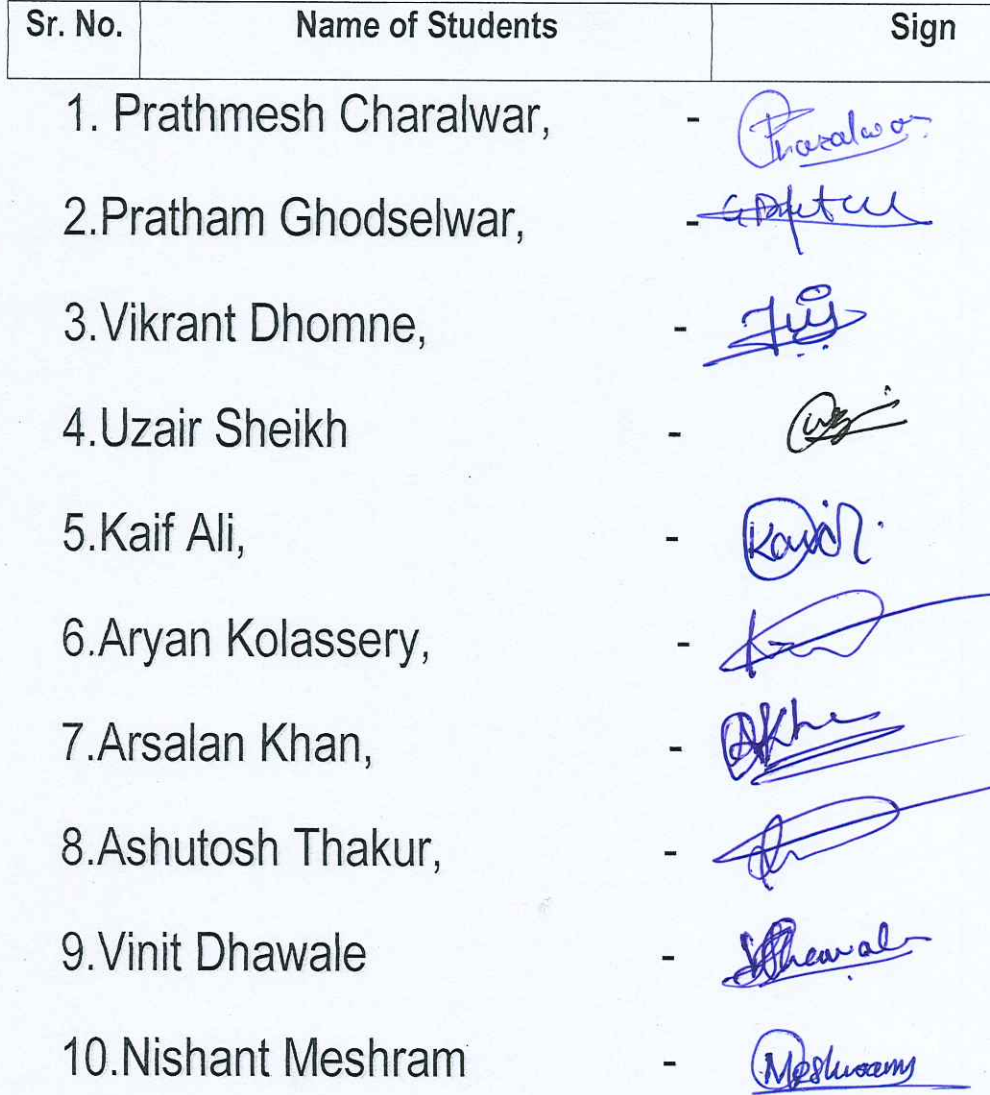 Sr. No. Name of Students Sign
1. Prathmesh Charalwar, -
2.Pratham Ghodselwar, -
3.Vikrant Dhomne, -
4.Uzair Sheikh -
5.Kaif Ali, -
6.Aryan Kolassery, -
7.Arsalan Khan, -
8.Ashutosh Thakur, -
9.Vinit Dhawale -
10.Nishant Meshram - Meshram